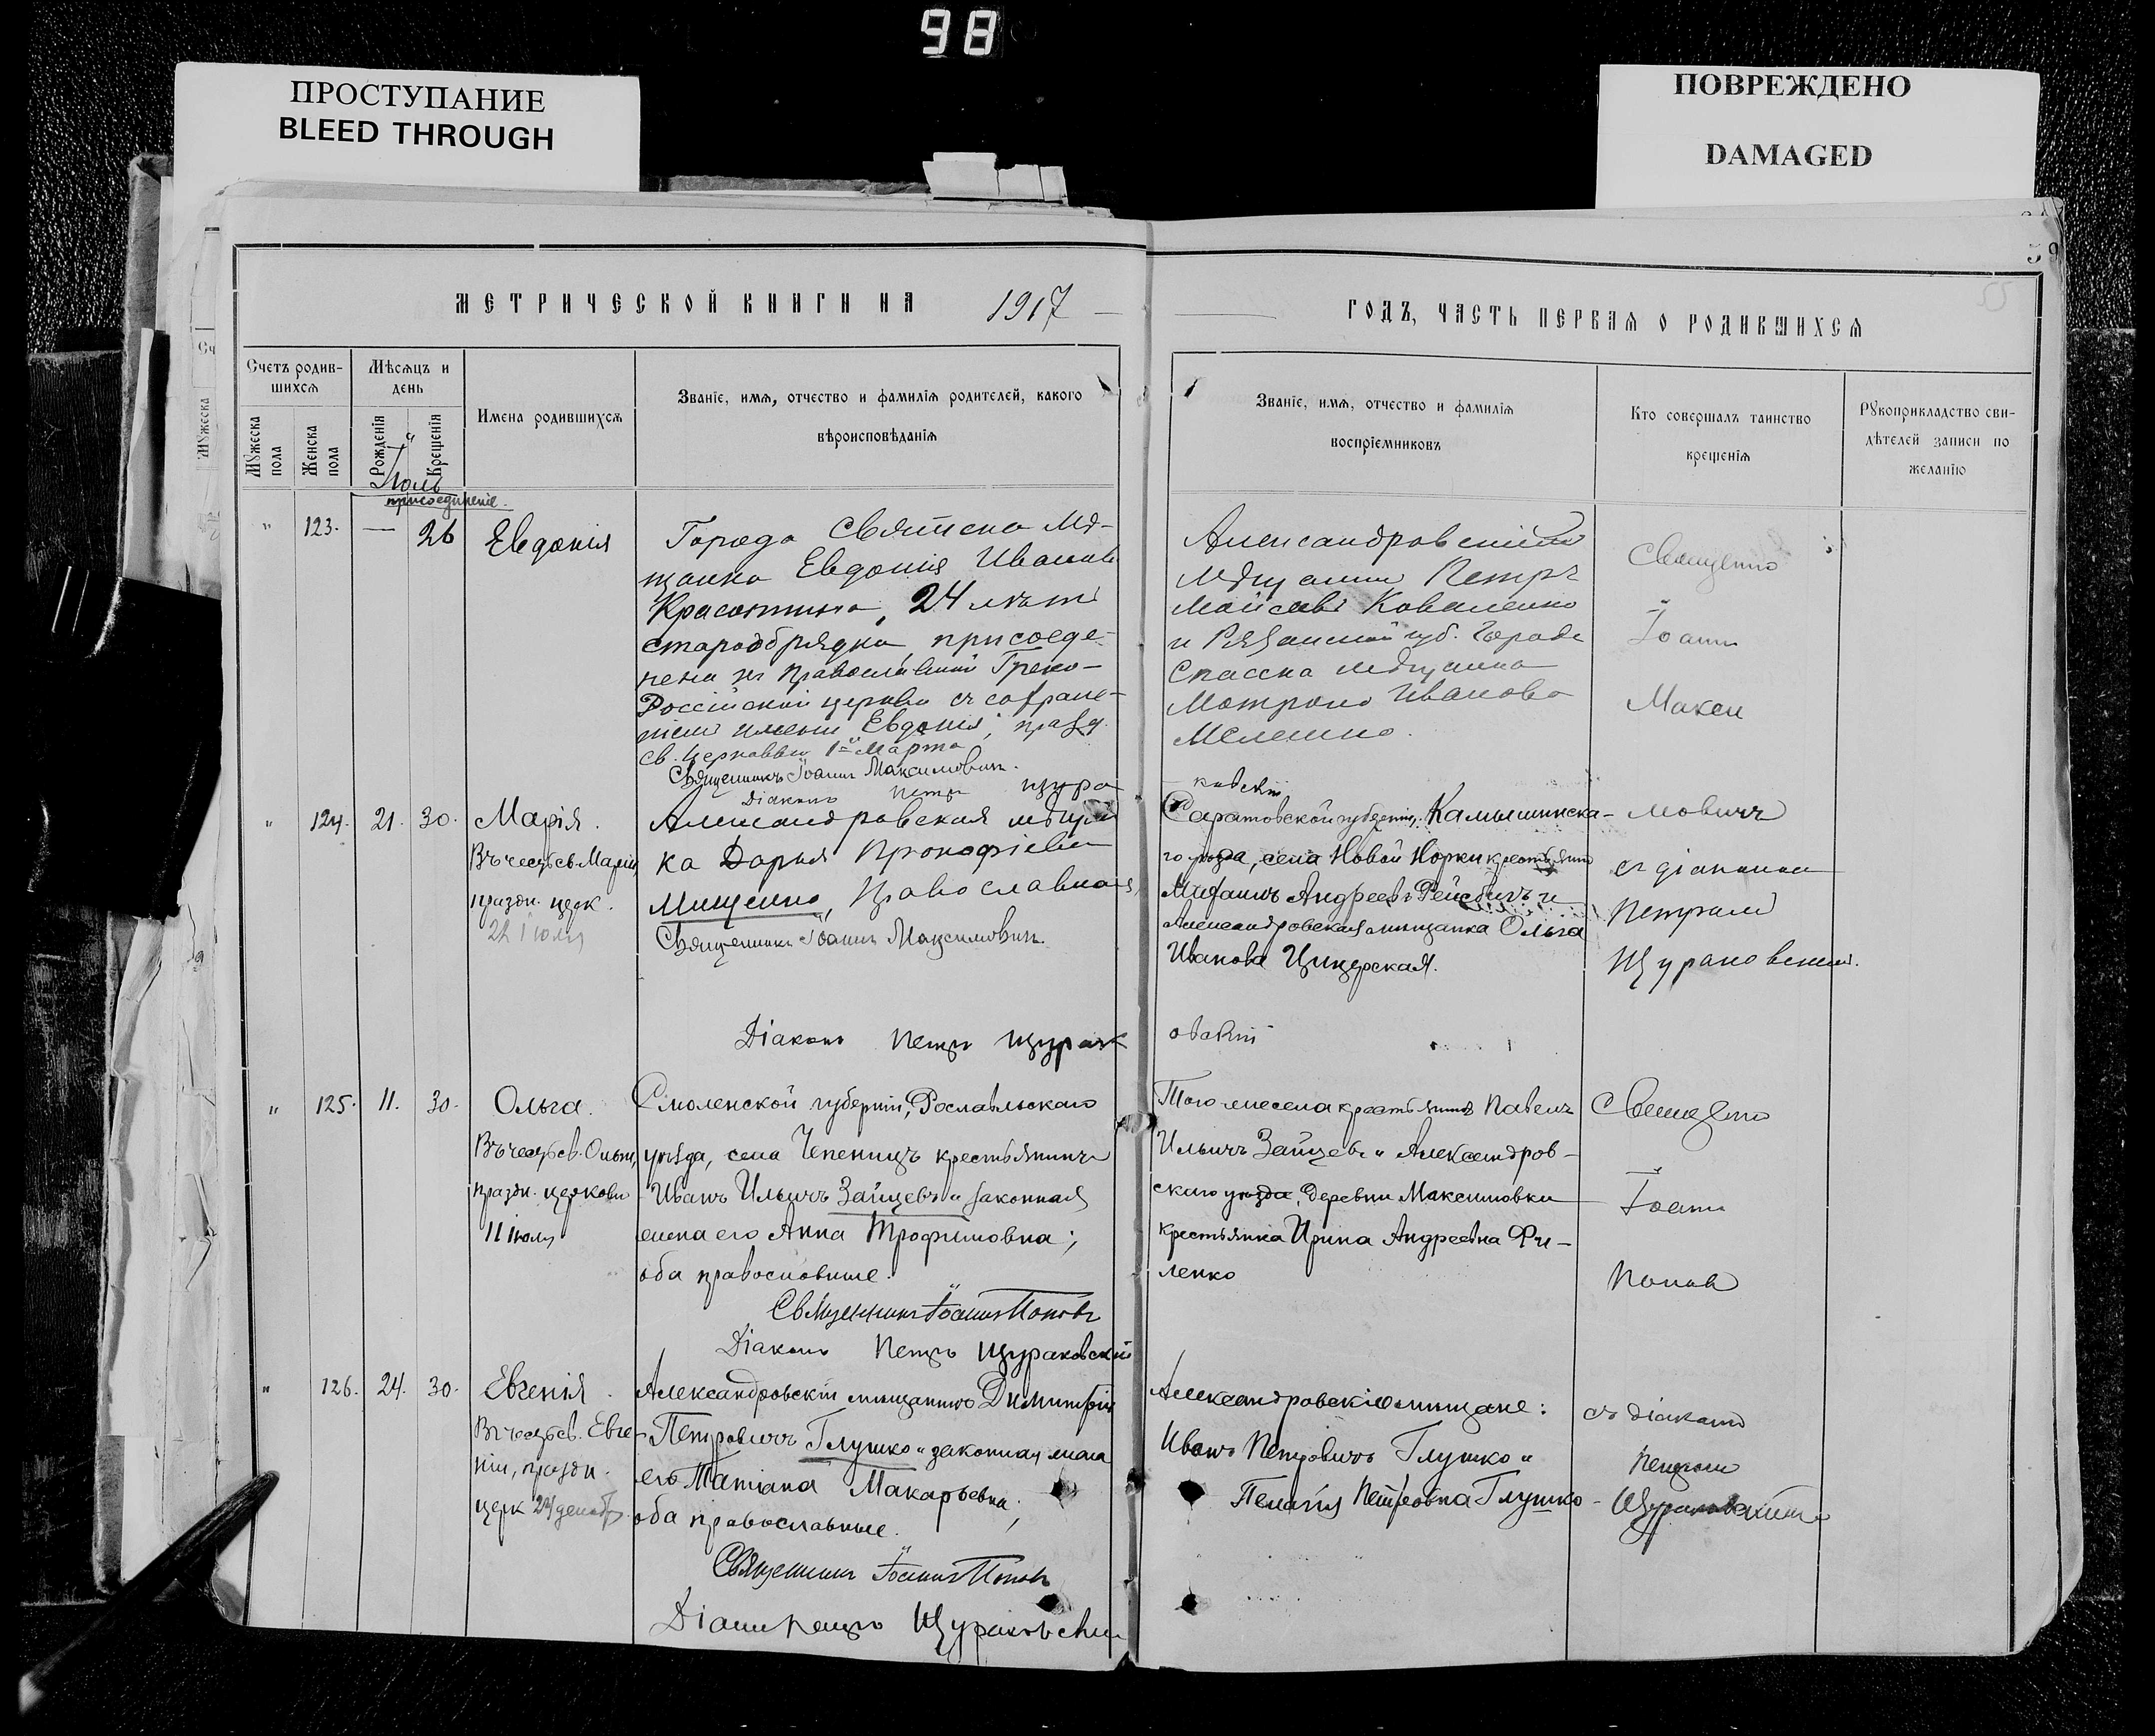 98
ПРОСТУПАНИЕ
BLEED THROUGH
ПОВРЕЖДЕНО
DAMAGED
МЕТРИЧЕСКОЙ КНИГИ НА 1917
ГОДЪ, ЧАСТЬ ПЕРВАЯ О РОДИВШИХСЯ
Счетъ родив-
шихся
Мужеска
пола
Женска
пола
Мѣсяцъ и
день
Рожденія
Крещенія
Имена родившихся
Званіе, имя, отчество и фамилія родителей, какого
вѣроисповѣданія
Званіе, имя, отчество и фамилія
воспріемниковъ
Кто совершалъ таинство
крещенія
Рукоприкладство сви-
дѣтелей записи по
желанію
Іюль
присоединеніе.
" 123. — 26 Евдокія
Города Святска мѣ-
щанка Евдокія Иванов
24 лѣтъ
старообрядка, присоеде-
нена къ Православной Греко-
Россійской церкви съ сохране-
ніемъ имени Евдокія, празд.
св. церковью 1го Марта
Священникъ Іоаннъ Максимович.
Діаконъ Петръ Щура
ковскій
Александровскій
мѣщанинъ Петръ
Моисеевъ Коваленко
и Рязанской губ. города
Спасска мѣщанка
Матрона Иванова
Священно
Іоанн
Макси
" 124. 21. 30. Марія.
Въ честь св. Маріи,
праздн. церк.
22 Іюля
Александровская мѣщан
ка Дарья Прокофіева
Мищенко, Православная
Священникъ Іоаннъ Максимович.
Діаконъ Петръ Щурак
овскій
Саратовской губерніи, Камышинска-
го уѣзда, села Новой Норки крестьянинъ
Андреевъ и
Александровская мѣщанка Ольга
Иванова
мовичъ
съ діакономъ
Петромъ
Щураковскимъ.
" 125. 11. 30. Ольга.
Въ честь св. Ольги,
праздн. церковью
11 Іюля
Смоленской губерніи, Рославльскаго
уѣзда, села крестьянинъ
Иванъ Ильичъ Зайцевъ и законная
жена его Анна Трофимовна;
оба православные.
Священникъ Іоаннъ Поповъ
Діаконъ Петръ Щураковскій
Того же села крестьянинъ Павелъ
Ильичъ Зайцевъ и Александров-
скаго уѣзда, деревни Максимовки
крестьянка Ирина Андреевна Фи-
ленко
Священно
Іоанн
Попов
" 126. 24. 30. Евгенія.
Въ честь св. Евге-
ніи, праздн.
церк 24 декабр.
Александровскій мѣщанинъ Димитрій
Петровичъ Глушко и законная жена
его Татіана Макарьевна;
оба православные.
Священникъ Іоаннъ Поповъ
Діаконъ Петръ Щураковскій
Александровскіе мѣщане:
Иванъ Петровичъ Глушко и
Пелагія Петровна Глушко
съ діаконо
Петромъ
Щураковскимъ